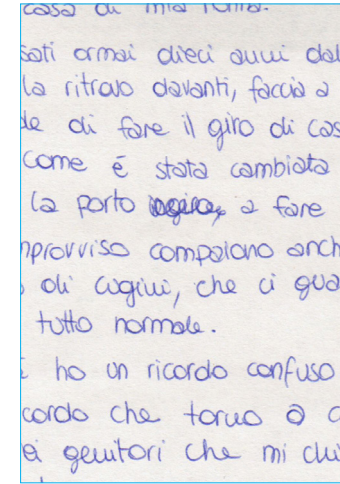 casa di mia
sati ormai dieci anni dal
la ritrovo davanti, faccia a
de di fare il giro di cas
come é stata cambiata
la porto a fare
mprovviso compaiono anch
di cugini, che ci gua
tutto normale.
ho un ricordo confuso
cordo che torno a c
ei genitori che mi chi